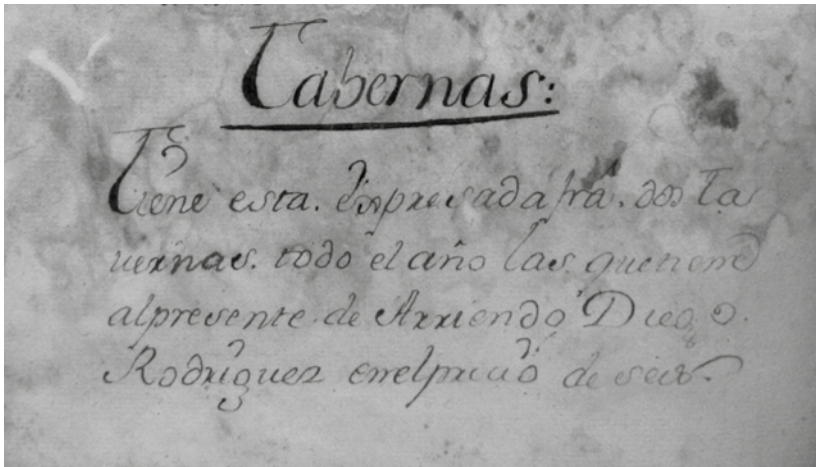 Tabernas:
Tiene esta. Expresada fra. dos Ta
vernas. todo el año las que tiene
alpresente de Arriendo Diego
Rodriguez en el precio de seis